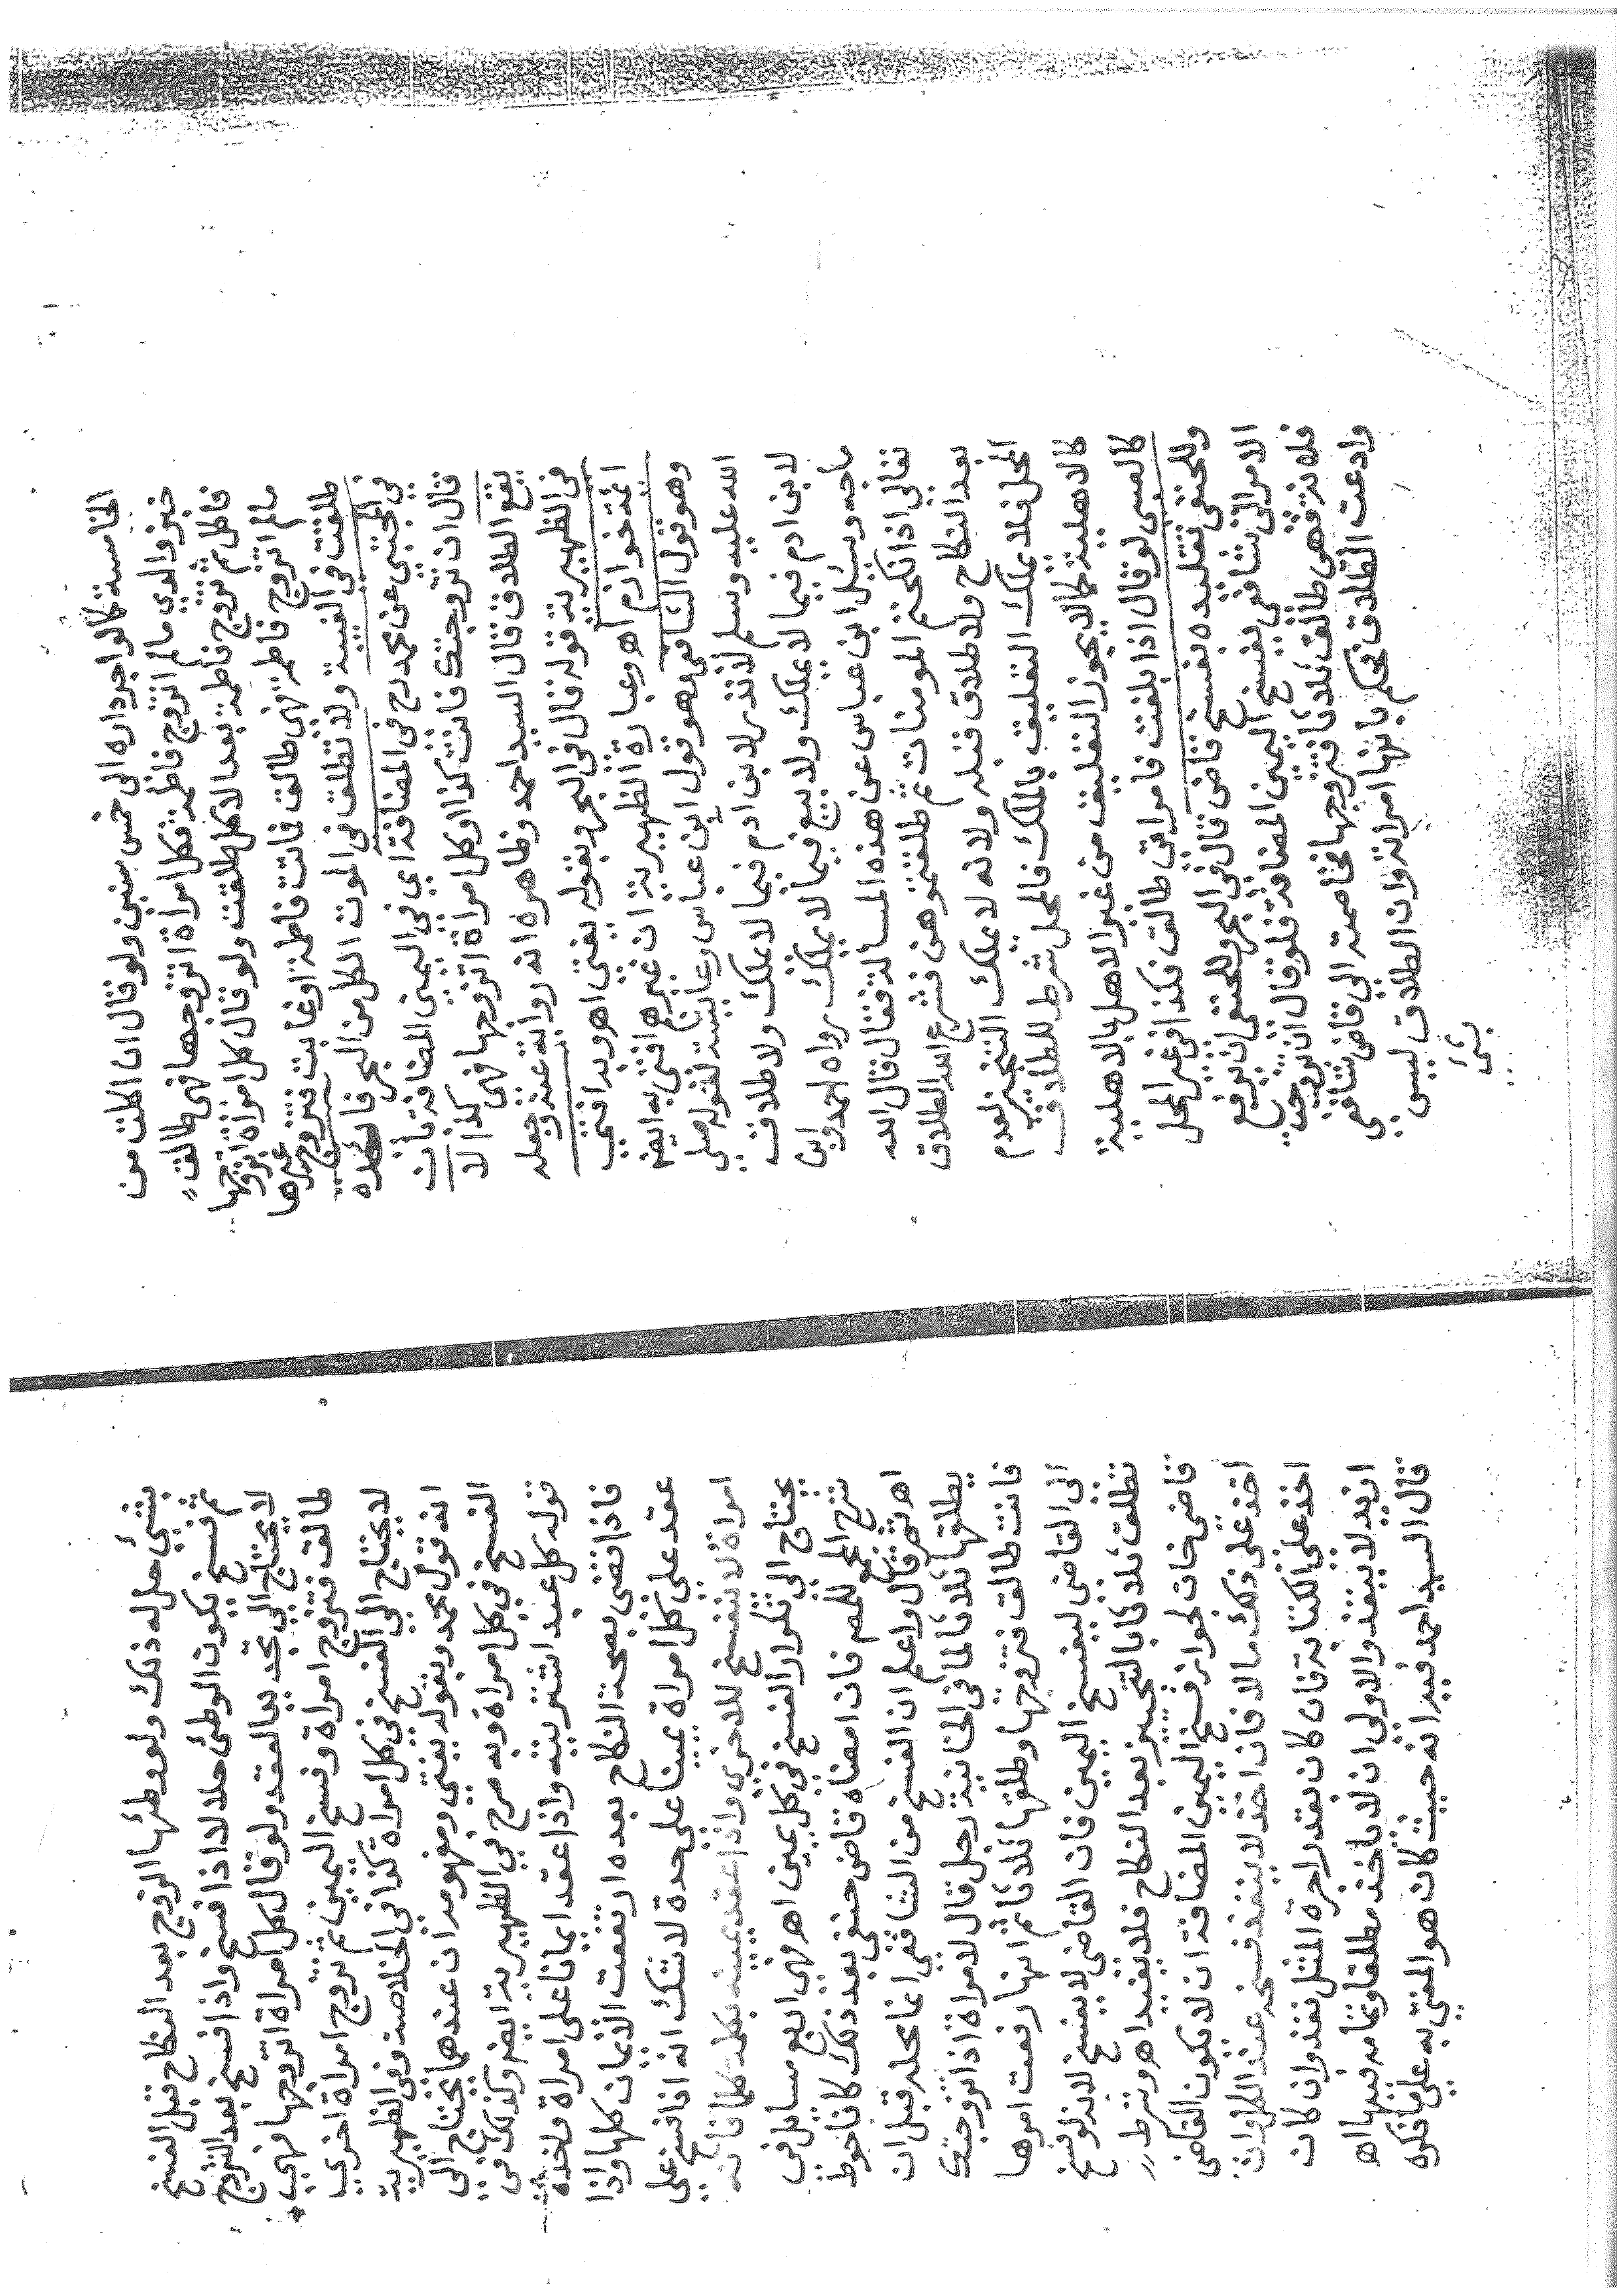 الخامسة كما لو اجر داره الى خمس سنين ولو قال ان اكلت من
خبز والدي مالم اتزوج فاطمة فكل امراة اتزوجها فهي طالق
فاكل ثم تزوج فاطمة بعد الاكل طلقت ولو قال كل امراة اتزوجها
مالم اتزوج فاطمة فهي طالق فماتت فاطمة او غابت فتزوج غيرها
طلقت في الغيبة ولا تطلق في الموت الكل من البحر فائده
في المجتبى عن محمد رح في المضافة اي في اليمين المضافة بأن
قال ان تزوجتك فانت كذا او كل امراة اتزوجها فهي كذا لا
يقع الطلاق قال السيد احمد وظاهره انه رواية عنه وجعله
في الظهيرية قوله قال في البحر بقوله يفتى اهـ وبه افتى
ائمة خوارزم اهـ وعبارة الظهيرية ان غيرها افتى به ايضا
وهو قول الشافعي وهو قول ابن عباس وعايشة لقوله صلى
الله عليه وسلم لا نذر لابن ادم فيما لا يملك ولا طلاق
لابن ادم فيما لا يملك ولا بيع فيما لا يملك رواه احمد وابن
ماجه وسئل ابن عباس عن هذه المسالة فقال قال الله
تعالى اذا نكحتم المومنات ثم طلقتموهن فشرع الله الطلاق
بعد النكاح ولا طلاق قبله ولانه لا يملك التنجيز لعدم
المحل فلا يملك التعليق بالملك فالمحل شرط للطلاق
كالاهلية فكما لا يجوز التعليق من غير الاهل بالاهلية
كالصبي لو قال اذا بلغت فامراتي طالق فكذا في غير المحل
وللحنفي تقليده بفسخ قاض قال في البحر وللحنفي ان يرفع
الامر الى شافعي يفسخ اليمين المضافة فلو قال ان تزوجت
فلانة فهي طالق ثلاثا فتزوجها فخاصمته الى قاض شافعي
وادعت الطلاق فحكم بانها امراته وان الطلاق ليس
بشئ
بشئ حل له ذلك ولو وطئها الزوج بعد النكاح قبل الفسخ
ثم فسخ يكون الوطئ حلالا اذا فسخ واذا فسخ بعد التزوج
لا يحتاج الى تجديد العقد ولو قال كل امراة اتزوجها فهي
طالق فتزوج امراة وفسخ اليمين ثم تزوج امراة اخرى
لا يحتاج الى الفسخ في كل امراة كذا في الخلاصة وفي الظهيرية
انه قول محمد وبقوله يفتى ومفهومه ان عندهما يحتاج الى
الفسخ في كل امراة وبه صرح في الظهيرية ايضا وكذلك في
قوله كل عبد اشتريته واذا عقد ايمانا على امراة واحدة
فاذا قضى بصحة النكاح بعده ارتفعت الايمان كلها واذا
عقد على كل امراة يمينا على حدة لا شك انه اذا فسخ على
امراة لا تنفسخ للاخرى واذا عقد يمينه بكلمة كلما فانه
يحتاج الى تكرار الفسخ في كل يمين اهـ فهي اربع مسايل في
شرح المجمع للمصـ فان امضاه قاض حنفي بعد ذلك كان احوط
اهـ ثم قال واعلم ان الفسخ من الشافعي انما محله قبل ان
يطلقها ثلاثا لما في الخانية رجل قال لامراة اذا تزوجتك
فانت طالق فتزوجها وطلقها ثلاثا ثم انها رفعت امرها
الى القاضي ليفسخ اليمين فان القاضي لا يفسخ لانه لو فسخ
تطلق ثلاثا بالتنجيز بعد النكاح فلا يفيد اهـ وشرط
قاضي خان لجواز فسخ اليمين المضافة ان لا يكون القاضي
اخذ على ذلك مالا فان اخذ لا ينفذ فسخه عند الكل وان
اخذ على الكتابة فان كان بقدر اجرة المثل نفذ وان كان
ازيد لا ينفذ والاولى ان لا ياخذ مطلقا وتمامه فيها اهـ
قال السيد احمد فيه انه حيث كان هو المفتى به على ما ذكره